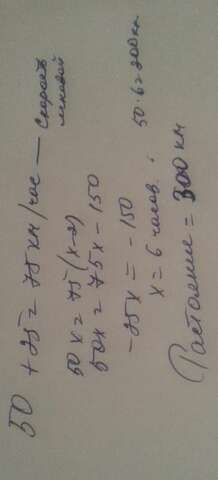 50 + 25 = 75 км/час — скорость легковой
50x = 75 (x-2)
50x = 75x - 150
-25x = -150
x = 6 часов. 50·6=300км
Растояние = 300 км